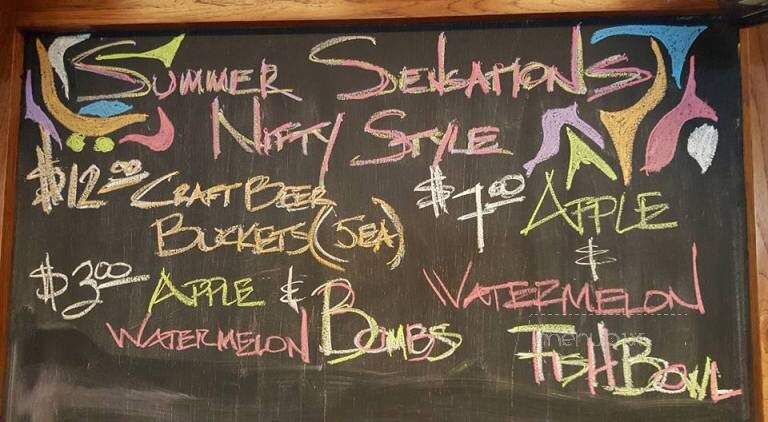 Summer Sensations
Nifty Style
$12.00 Craft Beer
Buckets (5ea)
$3.00 Apple &
Watermelon Bombs
$7.00 Apple
&
Watermelon
FishBowl
menupix